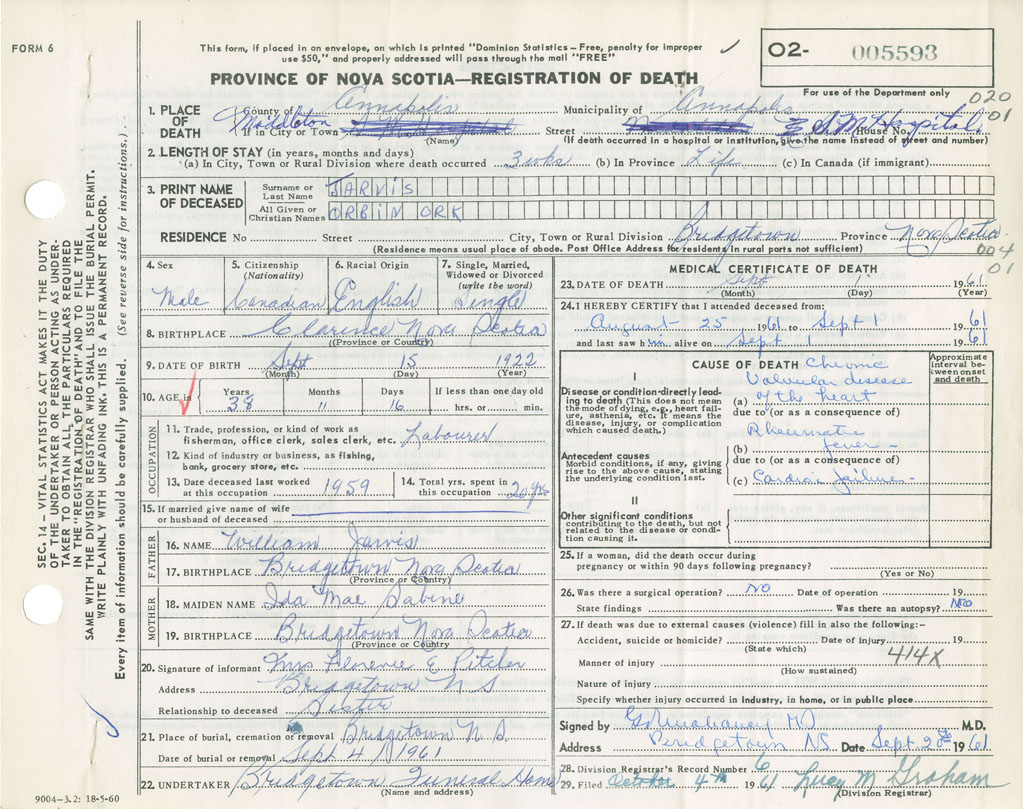 FORM 6
This form, if placed in an envelope, on which is printed "Dominion Statistics – Free, penalty for improper
use $50," and properly addressed will pass through the mail "FREE"
✓
O2- 005593
For use of the Department only
PROVINCE OF NOVA SCOTIA—REGISTRATION OF DEATH
020
01
1. PLACE OF DEATH
County of Annapolis Municipality of Annapolis
Middleton
If in City or Town (Name) Street S M Hospital House No.
(If death occurred in a hospital or institution, give the name instead of street and number)
2. LENGTH OF STAY (in years, months and days)
(a) In City, Town or Rural Division where death occurred 3 wks (b) In Province Life (c) In Canada (if immigrant)
3. PRINT NAME OF DECEASED
Surname or Last Name JARVIS
All Given or Christian Names ORBIN ORK
RESIDENCE No Street City, Town or Rural Division Bridgetown Province Nova Scotia
(Residence means usual place of abode. Post Office Address for residents in rural parts not sufficient)
004
01
4. Sex Male
5. Citizenship (Nationality) Canadian
6. Racial Origin English
7. Single, Married, Widowed or Divorced (write the word) Single
8. BIRTHPLACE Clarence Nova Scotia
(Province or Country)
9. DATE OF BIRTH Sept 15 1922
(Month) (Day) (Year)
10. AGE in Years 38 Months 11 Days 16 If less than one day old hrs. or min.
OCCUPATION
11. Trade, profession, or kind of work as
fisherman, office clerk, sales clerk, etc. Labourer
12. Kind of industry or business, as fishing,
bank, grocery store, etc.
13. Date deceased last worked at this occupation 1959
14. Total yrs. spent in this occupation 20 yrs
15. If married give name of wife
or husband of deceased
FATHER
16. NAME William Jarvis
17. BIRTHPLACE Bridgetown Nova Scotia
(Province or Country)
MOTHER
18. MAIDEN NAME Ida Mae Sabine
19. BIRTHPLACE Bridgetown Nova Scotia
(Province or Country
20. Signature of informant Mrs Florence E Pitcher
Address Bridgetown N S
Relationship to deceased Sister
21. Place of burial, cremation or removal Bridgetown N. S.
Date of burial or removal Sept 4 / 1961
22. UNDERTAKER Bridgetown Funeral Home
(Name and address)
9004-3.2: 18-5-60
MEDICAL CERTIFICATE OF DEATH
23. DATE OF DEATH Sept 1 1961
(Month) (Day) (Year)
24. I HEREBY CERTIFY that I attended deceased from:
August 25 1961 to Sept 1 1961
and last saw him alive on Sept 1 1961
CAUSE OF DEATH
Approximate interval between onset and death
I
Disease or condition directly leading to death (This does not mean the mode of dying, e.g., heart failure, asthenia, etc. It means the disease, injury, or complication which caused death.)
Chronic
Valvular disease
(a) of the heart
due to (or as a consequence of)
Rheumatic
(b) fever
due to (or as a consequence of)
(c) Cardiac failure
Antecedent causes
Morbid conditions, if any, giving rise to the above cause, stating the underlying condition last.
II
Other significant conditions
contributing to the death, but not related to the disease or condition causing it.
25. If a woman, did the death occur during
pregnancy or within 90 days following pregnancy?
(Yes or No)
26. Was there a surgical operation? NO Date of operation 19
State findings Was there an autopsy? NO
27. If death was due to external causes (violence) fill in also the following:–
Accident, suicide or homicide? Date of injury 19
(State which)
414X
Manner of injury
(How sustained)
Nature of injury
Specify whether injury occurred in industry, in home, or in public place
Signed by M.D.
Address Bridgetown NS Date Sept. 20th 1961
28. Division Registrar's Record Number 6
29. Filed October 4th 1961 Lucy M Graham
(Division Registrar)
SEC. 14 – VITAL STATISTICS ACT MAKES IT THE DUTY
OF THE UNDERTAKER OR PERSON ACTING AS UNDERTAKER TO OBTAIN ALL THE PARTICULARS REQUIRED
IN THE "REGISTRATION OF DEATH" AND TO FILE THE
SAME WITH THE DIVISION REGISTRAR WHO SHALL ISSUE THE BURIAL PERMIT.
WRITE PLAINLY WITH UNFADING INK. THIS IS A PERMANT RECORD.
Every item of information should be carefully supplied. (See reverse side for instructions.)